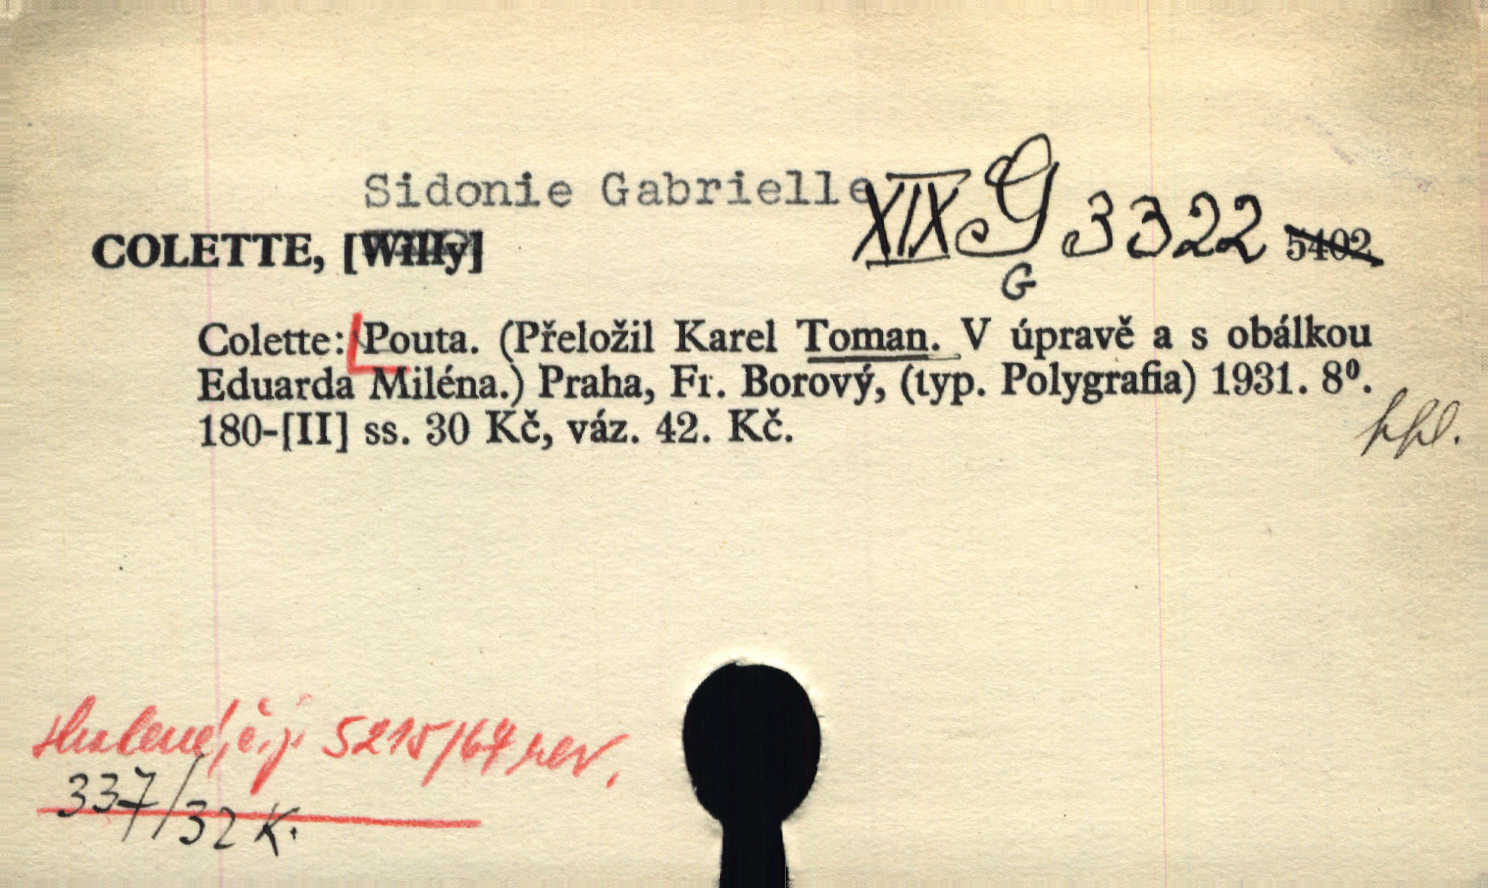 Sidonie Gabrielle
XIX G 3322 5402
COLETTE, [Willy]
G
Colette: Pouta. (Přeložil Karel Toman. V úpravě a s obálkou
Eduarda Miléna.) Praha, Fr. Borový, (typ. Polygrafia) 1931. 8⁰.
180-[II] ss. 30 Kč, váz. 42. Kč.
č.j. 5215/64 rev.
337/32 K.